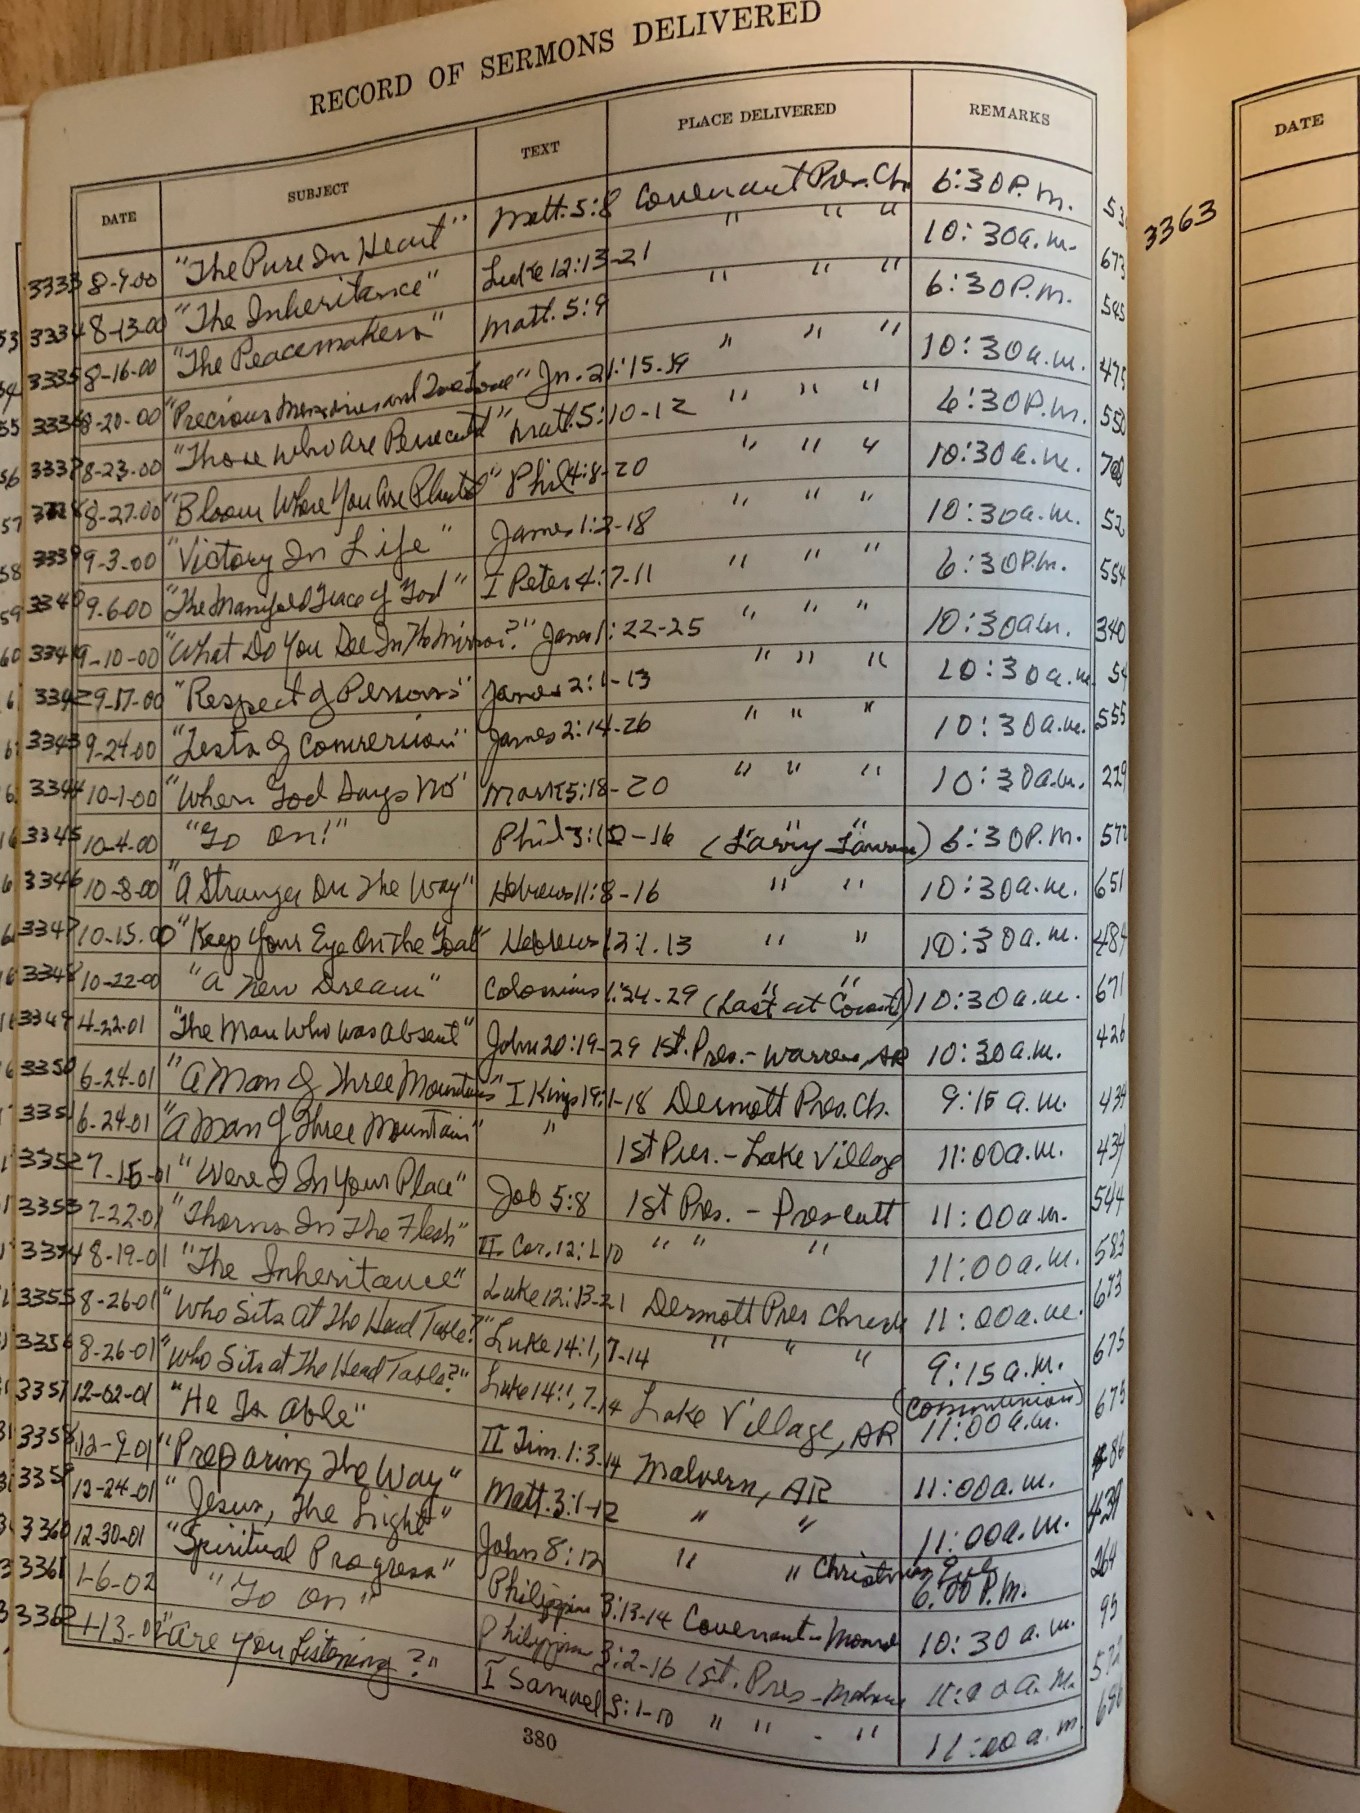 RECORD OF SERMONS DELIVERED
DATE SUBJECT TEXT PLACE DELIVERED REMARKS
3333 8-9-00 "The Pure In Heart" Matt. 5:8 Covenant Pres. Ch. 6:30 P.m.
3334 8-13-00 "The Inheritance" Luke 12:13-21 " " " 10:30 a.m. 673
3335 8-16-00 "The Peacemakers" Matt. 5:9 " " " 6:30 P.m. 545
3336 8-20-00 "Precious Memories and Love" Jn. 21:15-19 " " " 10:30 a.m. 475
3337 8-23-00 "Those Who Are Persecuted" Matt. 5:10-12 " " " 6:30 P.m. 550
3338 8-27-00 "Bloom Where You Are Planted" Phil 4:8-20 " " " 10:30 a.m.
3339 9-3-00 "Victory In Life" James 1:2-18 " " " 10:30 a.m. 52
3340 9-6-00 "The Manifold Grace of God" I Peter 4:7-11 " " " 6:30 P.m. 554
3341 9-10-00 "What Do You See In The Mirror?" James 1:22-25 " " " 10:30 a.m. 340
3342 9-17-00 "Respect of Persons" James 2:1-13 " " " 10:30 a.m. 54
3343 9-24-00 "Tests of Conversion" James 2:14-26 " " " 10:30 a.m. 555
3344 10-1-00 "When God Says No" Mark 5:18-20 " " " 10:30 a.m. 229
3345 10-4-00 "Go On!" Phil 3:12-16 (Larry " " ) 6:30 P.m. 572
3346 10-8-00 "A Stranger On The Way" Hebrews 11:8-16 " " 10:30 a.m. 651
3347 10-15-00 "Keep Your Eye On the Goal" Hebrews 12:1-13 " " 10:30 a.m. 484
3348 10-22-00 "A New Dream" Colossians 1:24-29 (Last at Covent) " " 10:30 a.m. 671
3349 4-22-01 "The Man Who Was Absent" John 20:19-29 1st. Pres. - Warren, AR 10:30 a.m. 426
3350 6-24-01 "A Man of Three Mountains" I Kings 19:1-18 Dermott Pres. Ch. 9:15 a.m. 434
3351 6-24-01 "A Man of Three Mountain" " 1st Pres. - Lake Village 11:00 a.m. 434
3352 7-15-01 "Were I In Your Place" Job 5:8 1st Pres. - Prescott 11:00 a.m. 544
3353 7-22-01 "Thorns In The Flesh" II Cor. 12:1-10 " " " 11:00 a.m. 583
3354 8-19-01 "The Inheritance" Luke 12:13-21 Dermott Pres Church 11:00 a.m. 673
3355 8-26-01 "Who Sits At The Head Table?" Luke 14:1, 7-14 " " " 9:15 a.m. 675
3356 8-26-01 "Who Sits at The Head Table?" Luke 14:1, 7-14 Lake Village, AR (Communion) 11:00 a.m. 675
3357 12-02-01 "He Is Able" II Tim. 1:3-14 Malvern, AR 11:00 a.m. 86
3358 12-9-01 "Preparing The Way" Matt. 3:1-12 " " 11:00 a.m. 439
3359 12-24-01 "Jesus, The Light" John 8:12 " " Christmas Eve 6:00 P.m. 264
3360 12-30-01 "Spiritual Progress" Philippians 3:13-14 Covenant - Monroe 10:30 a.m. 95
3361 1-6-02 "Go On" Philippians 3:2-16 1st. Pres - Malvern 11:00 a.m. 572
3362 1-13-02 "Are You Listening?" I Samuel 3:1-10 " " - " 11:00 a.m. 686
380
3363
DATE